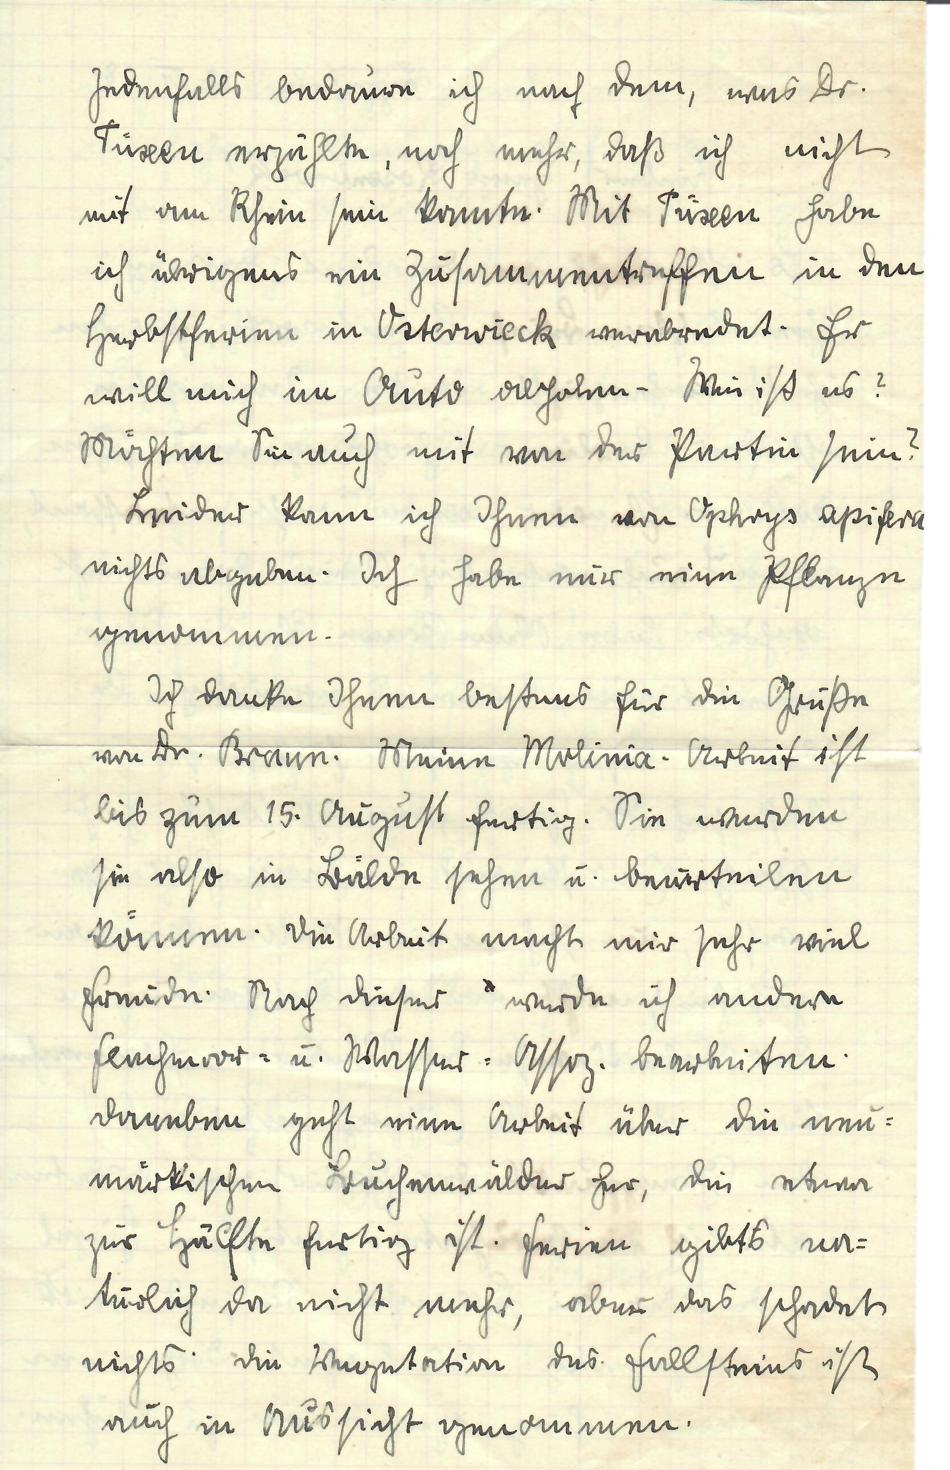 Jedenfalls bedaure ich nach dem, was Dr.
Tüxen erzählte, noch mehr, daß ich nicht
mit am Rhein sein konnte. Mit Tüxen habe
ich übrigens ein Zusammentreffen in den
Herbstferien in Osterwieck verabredet. Er
will mich im Auto abholen. Wie ist es?
Möchten Sie auch mit von der Partie sein?
Leider kann ich Ihnen von Ophrys apifera
nichts abgeben. Ich habe nur eine Pflanze
genommen.
Ich danke Ihnen bestens für die Grüße
von Dr. Braun. Meine Molinia-Arbeit ist
bis zum 15. August fertig. Sie werden
sie also in Bälde sehen u. beurteilen
können. Die Arbeit macht mir sehr viel
Freude. Nach dieser werde ich andere
Flachmoor- u. Wasser-Assoz. bearbeiten.
Daneben geht eine Arbeit über die neu-
märkischen Buchenwälder her, die etwa
zur Hälfte fertig ist. Ferien gibts na-
türlich da nicht mehr, aber das schadet
nichts. Die Vegetation des Fallsteins ist
auch in Aussicht genommen.